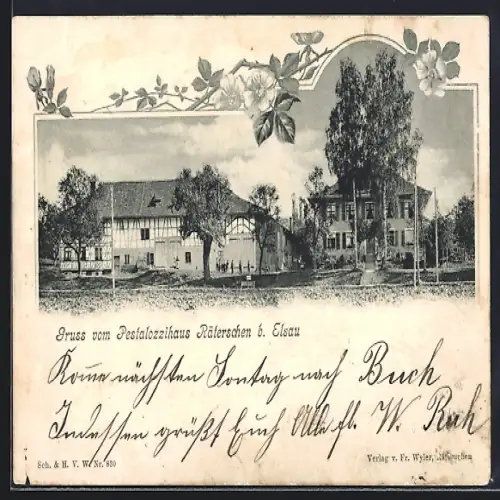 Gruss vom Pestalozzihaus Räterschen b. Elsau
Kome nächsten Sontag nach Buch
Indessen grüßt Euch Alle fl. W.
Sch. & H. V. W. Nr. 830
Verlag v. Fr. Wyler,